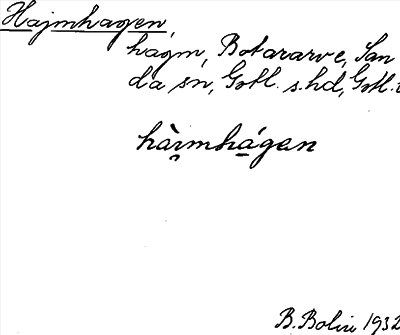 Hajmhagen,
hagm, Botararve, San
da sn, Gotl. s.hd, Gotl.
hàimhágen
B. Bolin 1932